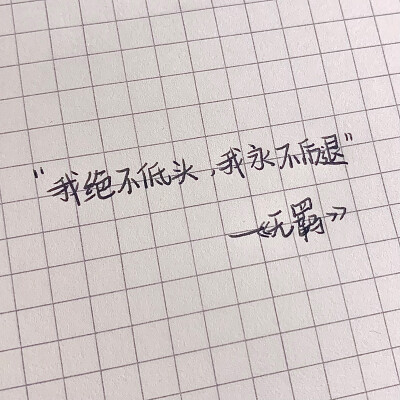 “我绝不低头，我永不后退”
—《无羁》